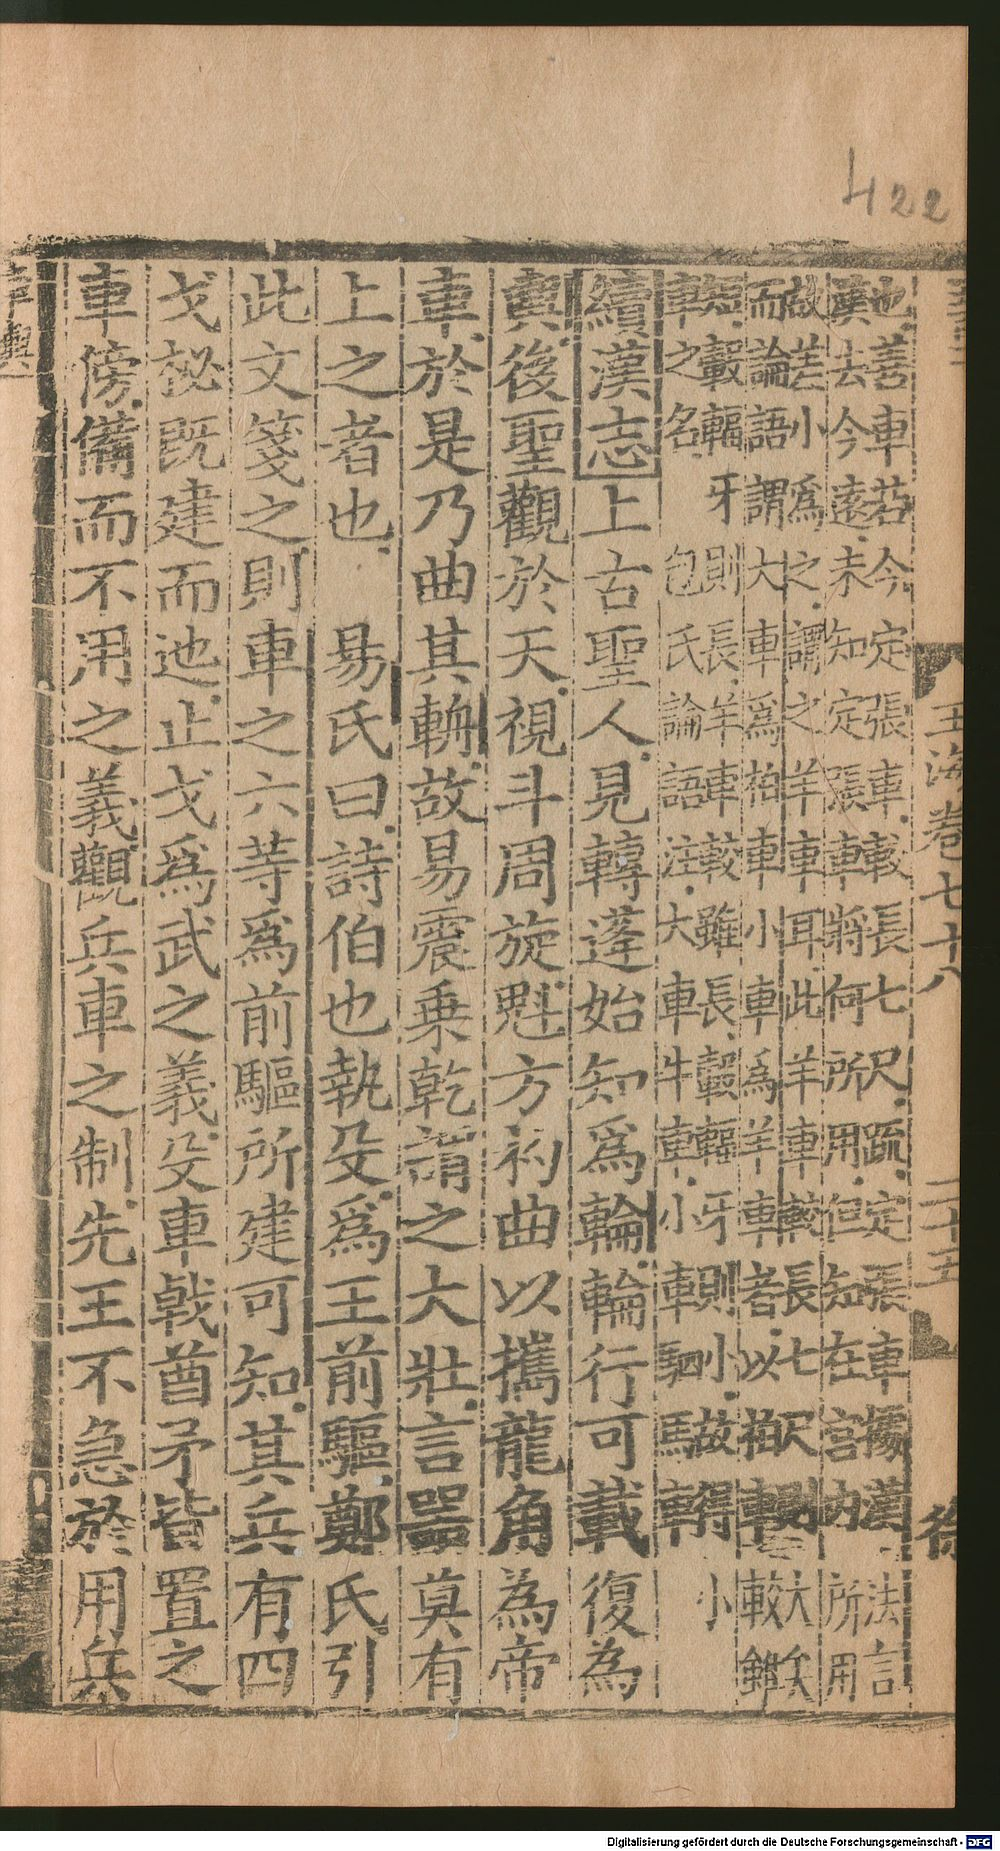 422
玉海卷七十八 二十五 徐
也善車若今定張車較長七尺疏定張車據漢法言
漢去今遠未知定張車將何所用但知在宮內所用
故差小爲之謂之羊車耳此羊車較長七尺大矣
而論語謂大車爲柏車小車爲羊車者以柏車較雖
短轂輻牙則長羊車較雖長轂輻牙則小故得小
車之名 包氏論語注大車牛車小車駟馬車
續漢志上古聖人見轉蓬始知爲輪輪行可載復為
輿後聖觀於天視斗周旋魁方杓曲以攜龍角為帝
車於是乃曲其輈故易震乗乾謂之大壯言器莫有
上之者也 易氏曰詩伯也執殳爲王前驅鄭氏引
此文箋之則車之六等爲前驅所建可知其兵有四
戈柲既建而迆止戈爲武之義殳車戟酋矛皆置之
車傍備而不用之義觀兵車之制先王不急於用兵
Digitalisierung gefördert durch die Deutsche Forschungsgemeinschaft - DFG